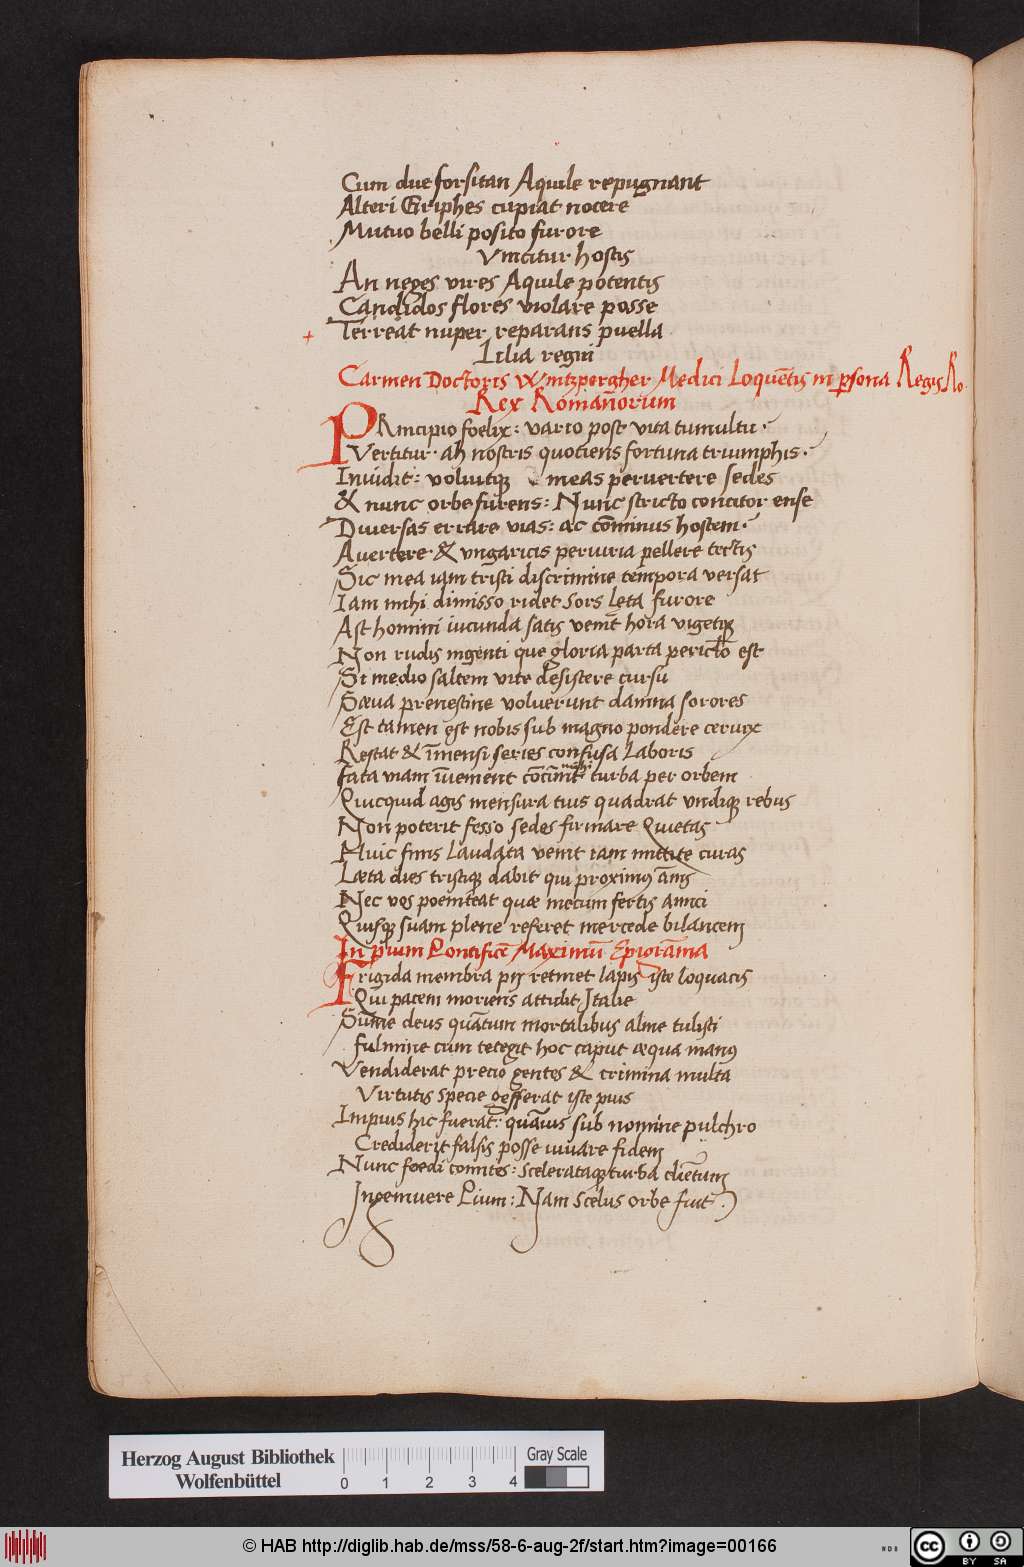 Cum due forsitan Aquile repugnant
Alteri Griphes cupiat nocere
Mutuo belli posito furore
Vincitur hostis
An neges vires Aquile potentis
Candidos flores violare posse
Terreat nuper reparans puella
Lilia regni
Carmen Doctoris Wintzpergher Medici Loquẽtis in ꝑsona Regis Ro.
Rex Romañorum
PRincipio foelix: vario post vita tumultu·
Vertitur· ah nostris quotiens fortuna triumphis·
Inuidit: voluitqꝫ meas peruertere sedes
& nunc orbe furens: Nunc stricto concitor ense
Diuersas errare vias: ac cõminus hostem·
Auertere· & vngaricis periuria pellere tectis
Sic mea iam tristi discrimine tempora versat
Iam mihi dimisso ridet sors leta furore
Ast homini iucunda satis venit hora vigetqꝫ
Non rudis ingenti que gloria parta pericl̃o est
Si medio saltem vite desistere cursu
Sæua prenestine voluerunt damna sorores
Est tamen est nobis sub magno pondere ceruix
Restat & ĩmensi series confusa Laboris
fata viam ĩuenient turba per orbem
Quicquid agis mensura tuis quadrat vndiqꝫ rebus
Non poterit fesso sedes firmare Quietas
Huic finis laudata venit iam mittite curas
Læta dies tristiqꝫ dabit qui proximꝰ ãnis
Nec vos poeniteat quæ mecum fertis amici
Quisqꝫ suam plene referet mercede bilancem
In pium Pontificẽ Maximũ Epigrãma
Frigida membra pij retinet lapis iste loquacis
Qui pacem moriens attulit Italie
Sũme deus quãtum mortalibus alme tulisti
fulmine cum tetegit hoc caput æqua manꝰ
Vendiderat precio gentes & crimina multa
Virtutis specie gesserat iste pius
Impius hic fuerat: quãuis sub nomine pulchro
Crediderit falsis posse iuuare fidem
Nunc foedi comites: scelerataqꝫ turba cliẽtum
Ingemuere Pium: Nam scelus orbe fuit.
Herzog August Bibliothek
Wolfenbüttel
0 1 2 3 4
Gray Scale
© HAB http://diglib.hab.de/mss/58-6-aug-2f/start.htm?image=00166
cc BY SA